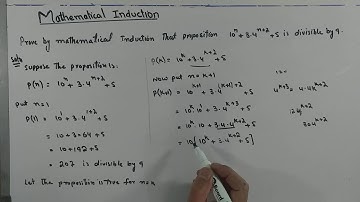 Mathematical Induction
Prove by mathematical Induction That proposition 10^n + 3·4^{n+2} + 5 is divisible by 9.
Soln
Suppose The proposition is.
P(n) = 10^n + 3·4^{n+2} + 5
put n = 1
P(1) = 10^1 + 3·4^{1+2} + 5
= 10 + 3×64 + 5
= 10 + 192 + 5
= 207 is divisible by 9
Let the proposition is true for n=k
P(k) = 10^k + 3·4^{k+2} + 5
Now put n = k+1
P(k+1) = 10^{k+1} + 3·4^{(k+1)+2} + 5
= 10^k·10^1 + 3·4^{k+3} + 5
= 10^k·10 + 3·4·4^{k+2} + 5
= 10[10^k + 3·4^{k+2} + 5]
4^{k+3} = 4·4^{k+2}
12·4^{k+2}
30·4^{k+2}